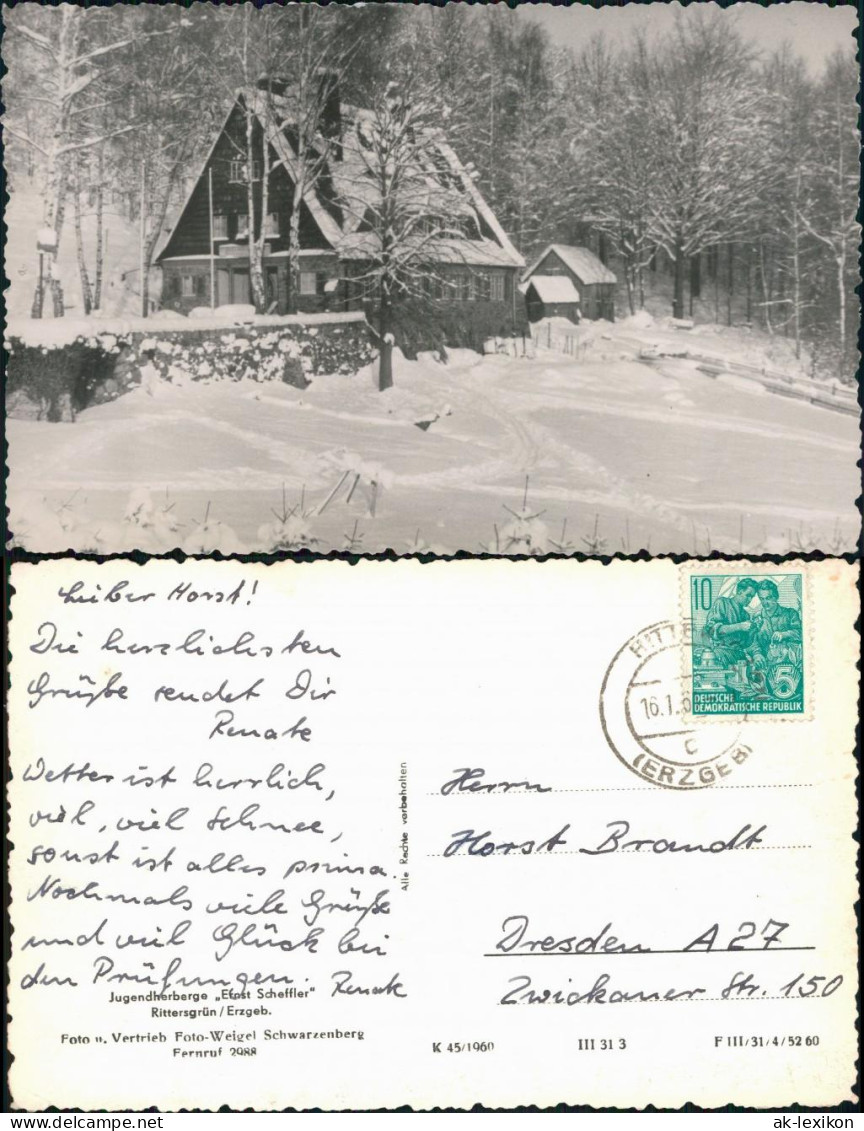 Lieber Horst!
Die herzlichsten
Grüße sendet Dir
Renate
Wetter ist herrlich,
viel, viel Schnee,
sonst ist alles prima.
Nochmals viele Grüße
und viel Glück bei
den Prüfungen. Renate
Jugendherberge „Ernst Scheffler"
Rittersgrün/Erzgeb.
Foto u. Vertrieb Foto-Weigel Schwarzenberg
Fernruf 2988
Alle Rechte vorbehalten
10
DEUTSCHE
DEMOKRATISCHE REPUBLIK
5
RITTE
16.1.6
c
(ERZGEB)
Herrn
Horst Brandt
Dresden A 27
Zwickauer Str. 150
K 45/1960
III 31 3
F III/31/4/52 60
© oldthing.de
ak-lexikon